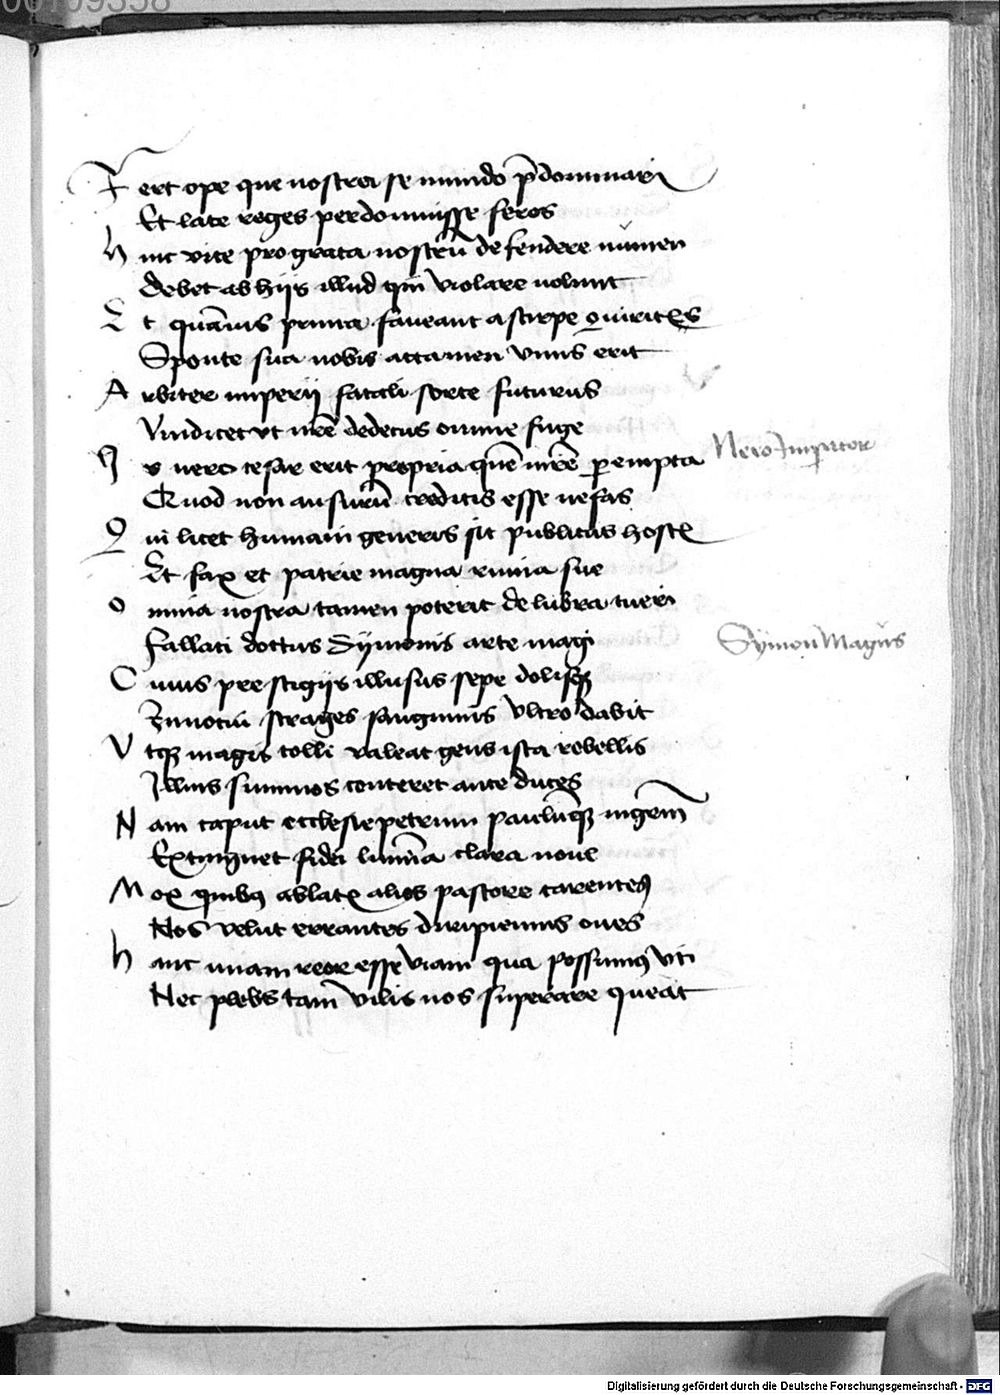 00109358
Fert ope que nostra se mundo p̄dominari
Et late reges perdomuisse feros
Hinc vice pro grata nostrū defendere númen
Debet ab hijs illud qui violare volunt
Et quāuis prima faueant a stirpe quirites
Sponte sua nobis attamen vnus erit
Arbiter imperij fatali sorte futurus
Vindicet vt nr̄e dedecus omne fuge
Is nero cesar erit propria quē mr̄e perempta
Quod non ausurū creditis esse nefas
Qui licet humani generis sit publicus hostis
Et fax et patrie magna ruina sue
Omnia nostra tamen poterit delubra tueri
Fallaci doctus Sÿmonis arte magi
Cuius prestigijs illusus sepe dolisqꝫ
Innocui strages sanguinis vltro dabit
Vtqꝫ magis tolli valeat gens ista rebellis
Illius summos conteret ante duces
Nam caput ecclesie petrum paulūqꝫ ingem̄
Extinguet fidei lumīa clara noue
Mox quibꝰ ablatis alios pastore carentes
Nos velut errantes diripiemus oues
Hanc vnam reor esse viam qua possumꝰ vti
Nec plebs tam̄ vilis nos superare queat
Nero Imperator
Sÿmon Magus
Digitalisierung gefördert durch die Deutsche Forschungsgemeinschaft - DFG